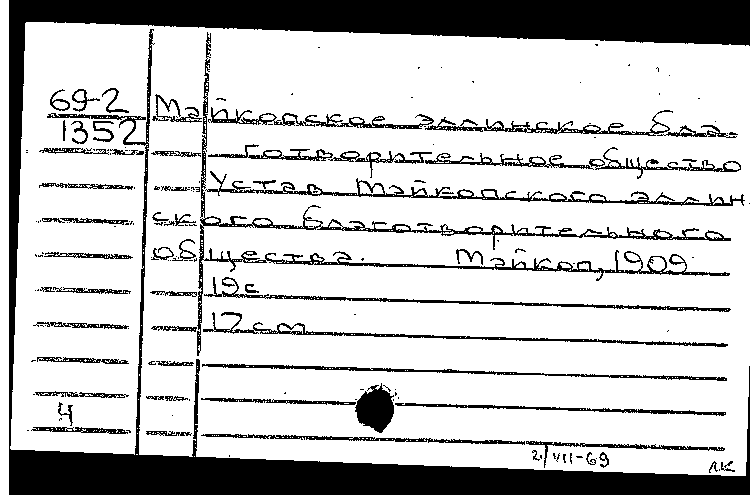 69-2 Майкопское эллинское бла-
1352 готворительное общество
Устав Майкопского эллин-
ского благотворительного
общества. Майкоп, 1909
19с
17см
4
2/VII-69 ЛК